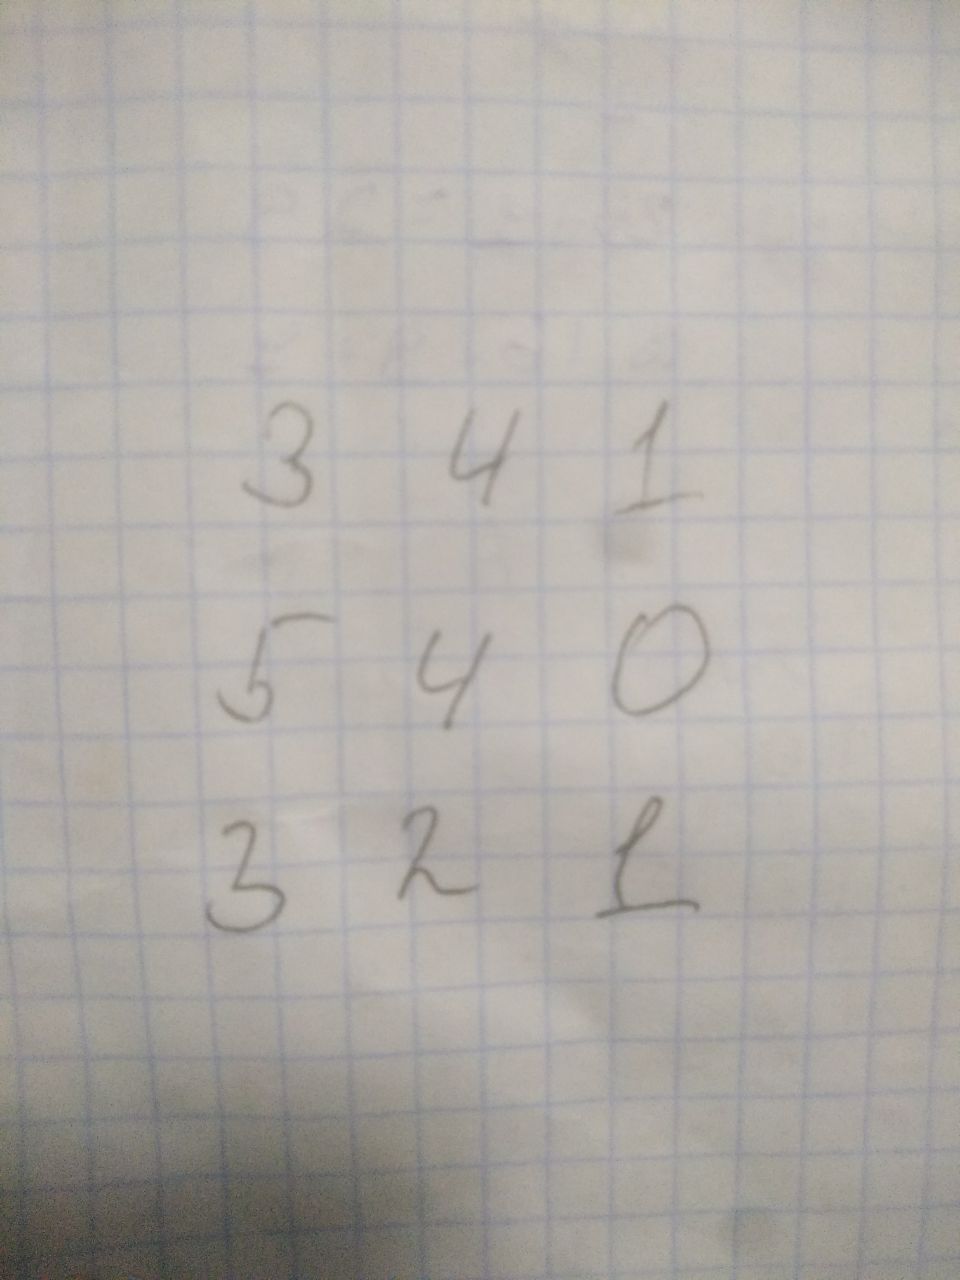 3 4 1
5 4 0
3 2 1